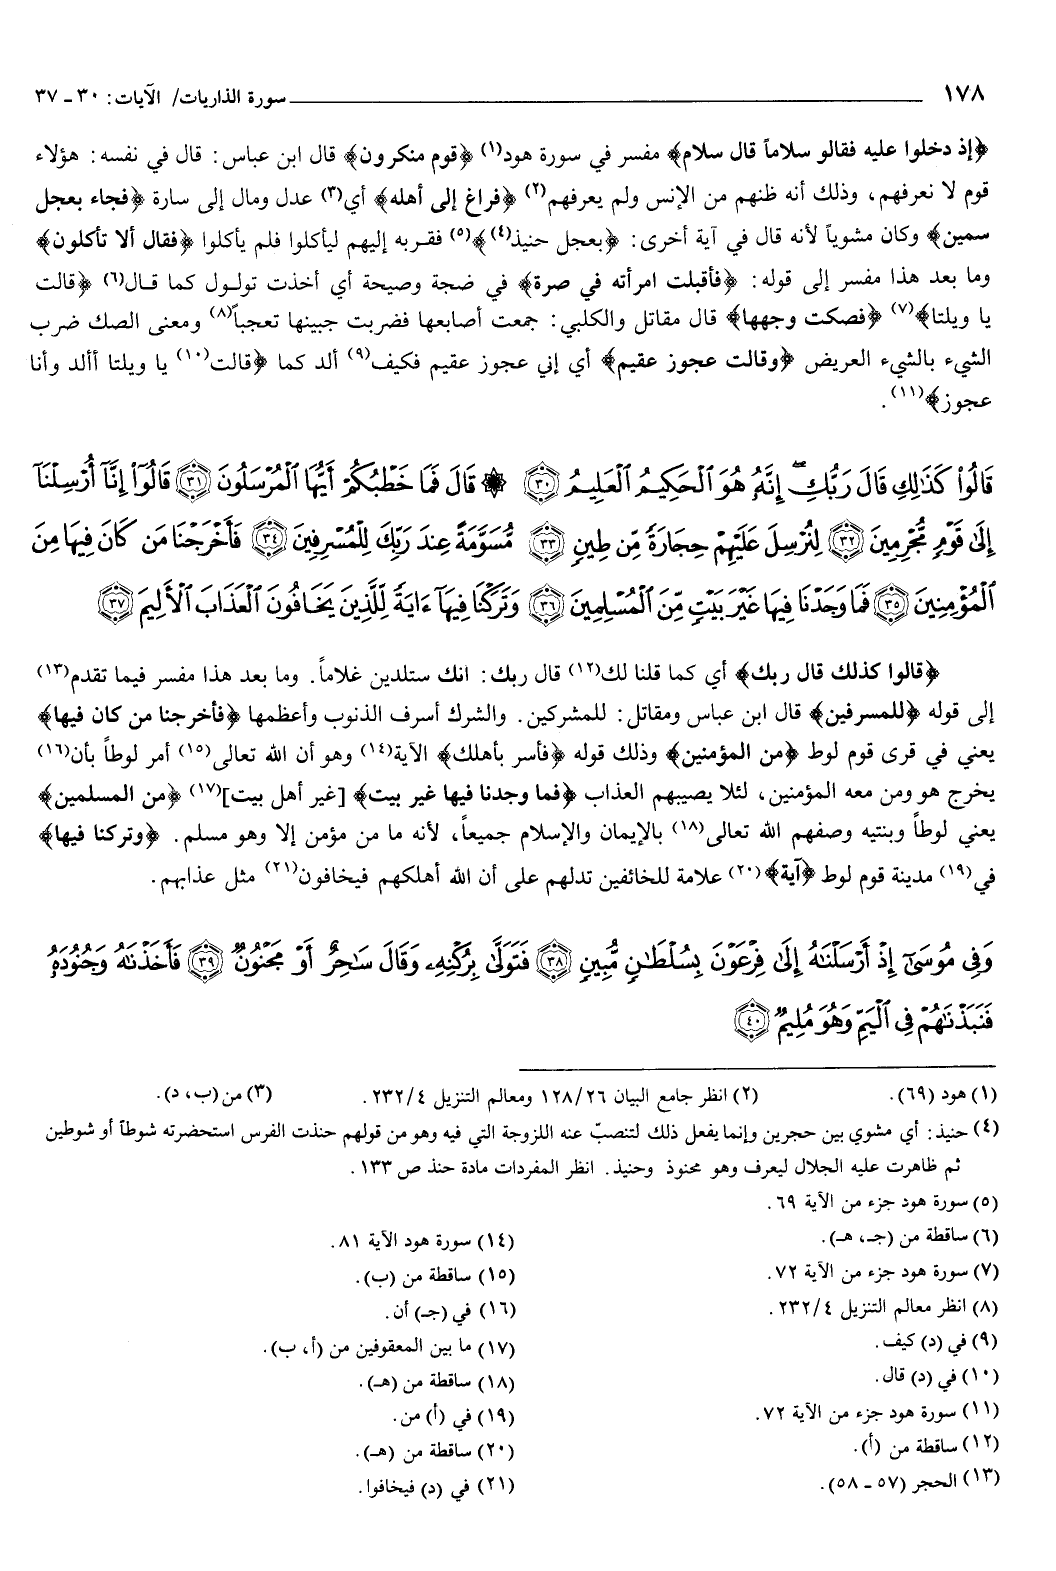 ١٧٨ سورة الذاريات/ الآيات: ٣٠ ـ ٣٧
﴿إذ دخلوا عليه فقالو سلاماً قال سلام﴾ مفسر في سورة هود(١) ﴿قوم منكرون﴾ قال ابن عباس: قال في نفسه: هؤلاء
قوم لا نعرفهم، وذلك أنه ظنهم من الإنس ولم يعرفهم(٢) ﴿فراغ إلى أهله﴾ أي(٣) عدل ومال إلى سارة ﴿فجاء بعجل
سمين﴾ وكان مشوياً لأنه قال في آية أخرى: ﴿بعجل حنيذ(٤)﴾(٥) فقربه إليهم ليأكلوا فلم يأكلوا ﴿فقال ألا تأكلون﴾
وما بعد هذا مفسر إلى قوله: ﴿فأقبلت امرأته في صرة﴾ في ضجة وصيحة أي أخذت تولول كما قال(٦) ﴿قالت
يا ويلتا﴾(٧) ﴿فصكت وجهها﴾ قال مقاتل والكلبي: جمعت أصابعها فضربت جبينها تعجباً(٨) ومعنى الصك ضرب
الشيء بالشيء العريض ﴿وقالت عجوز عقيم﴾ أي إني عجوز عقيم فكيف(٩) ألد كما ﴿قالت(١٠) يا ويلتا أألد وأنا
عجوز﴾(١١).
قَالُوا۟ كَذَٰلِكِ قَالَ رَبُّكِ ۖ إِنَّهُۥ هُوَ ٱلْحَكِيمُ ٱلْعَلِيمُ ﴿٣٠﴾ ۞ قَالَ فَمَا خَطْبُكُمْ أَيُّهَا ٱلْمُرْسَلُونَ ﴿٣١﴾ قَالُوٓا۟ إِنَّآ أُرْسِلْنَآ
إِلَىٰ قَوْمٍ مُّجْرِمِينَ ﴿٣٢﴾ لِنُرْسِلَ عَلَيْهِمْ حِجَارَةً مِّن طِينٍ ﴿٣٣﴾ مُّسَوَّمَةً عِندَ رَبِّكَ لِلْمُسْرِفِينَ ﴿٣٤﴾ فَأَخْرَجْنَا مَن كَانَ فِيهَا مِنَ
ٱلْمُؤْمِنِينَ ﴿٣٥﴾ فَمَا وَجَدْنَا فِيهَا غَيْرَ بَيْتٍ مِّنَ ٱلْمُسْلِمِينَ ﴿٣٦﴾ وَتَرَكْنَا فِيهَآ ءَايَةً لِّلَّذِينَ يَخَافُونَ ٱلْعَذَابَ ٱلْأَلِيمَ ﴿٣٧﴾
﴿قالوا كذلك قال ربك﴾ أي كما قلنا لك(١٢) قال ربك: انك ستلدين غلاماً. وما بعد هذا مفسر فيما تقدم(١٣)
إلى قوله ﴿للمسرفين﴾ قال ابن عباس ومقاتل: للمشركين. والشرك أسرف الذنوب وأعظمها ﴿فأخرجنا من كان فيها﴾
يعني في قرى قوم لوط ﴿من المؤمنين﴾ وذلك قوله ﴿فأسر بأهلك﴾ الآية(١٤) وهو أن الله تعالى(١٥) أمر لوطاً بأن(١٦)
يخرج هو ومن معه المؤمنين، لئلا يصيبهم العذاب ﴿فما وجدنا فيها غير بيت﴾ [غير أهل بيت](١٧) ﴿من المسلمين﴾
يعني لوطاً وبنتيه وصفهم الله تعالى(١٨) بالإيمان والإسلام جميعاً، لأنه ما من مؤمن إلا وهو مسلم. ﴿وتركنا فيها﴾
في(١٩) مدينة قوم لوط ﴿آية﴾(٢٠) علامة للخائفين تدلهم على أن الله أهلكهم فيخافون(٢١) مثل عذابهم.
وَفِى مُوسَىٰٓ إِذْ أَرْسَلْنَٰهُ إِلَىٰ فِرْعَوْنَ بِسُلْطَٰنٍ مُّبِينٍ ﴿٣٨﴾ فَتَوَلَّىٰ بِرُكْنِهِۦ وَقَالَ سَٰحِرٌ أَوْ مَجْنُونٌ ﴿٣٩﴾ فَأَخَذْنَٰهُ وَجُنُودَهُۥ
فَنَبَذْنَٰهُمْ فِى ٱلْيَمِّ وَهُوَ مُلِيمٌ ﴿٤٠﴾
(١) هود (٦٩). (٢) انظر جامع البيان ١٢٨/٢٦ ومعالم التنزيل ٢٣٢/٤. (٣) من (ب، د).
(٤) حنيذ: أي مشوي بين حجرين وإنما يفعل ذلك لتنصبّ عنه اللزوجة التي فيه وهو من قولهم حنذت الفرس استحضرته شوطاً أو شوطين
ثم ظاهرت عليه الجلال ليعرف وهو محنوذ وحنيذ. انظر المفردات مادة حنذ ص ١٣٣.
(٥) سورة هود جزء من الآية ٦٩.
(٦) ساقطة من (جـ، هـ).
(٧) سورة هود جزء من الآية ٧٢.
(٨) انظر معالم التنزيل ٢٣٢/٤.
(٩) في (د) كيف.
(١٠) في (د) قال.
(١١) سورة هود جزء من الآية ٧٢.
(١٢) ساقطة من (أ).
(١٣) الحجر (٥٧ ـ ٥٨).
(١٤) سورة هود الآية ٨١.
(١٥) ساقطة من (ب).
(١٦) في (جـ) أن.
(١٧) ما بين المعقوفين من (أ، ب).
(١٨) ساقطة من (هـ).
(١٩) في (أ) من.
(٢٠) ساقطة من (هـ).
(٢١) في (د) فيخافوا.